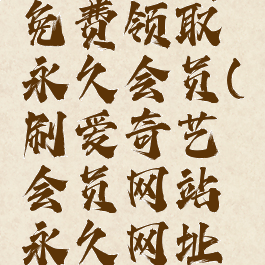 免费领取
永久会员(
刷爱奇艺
会员网站
永久网址